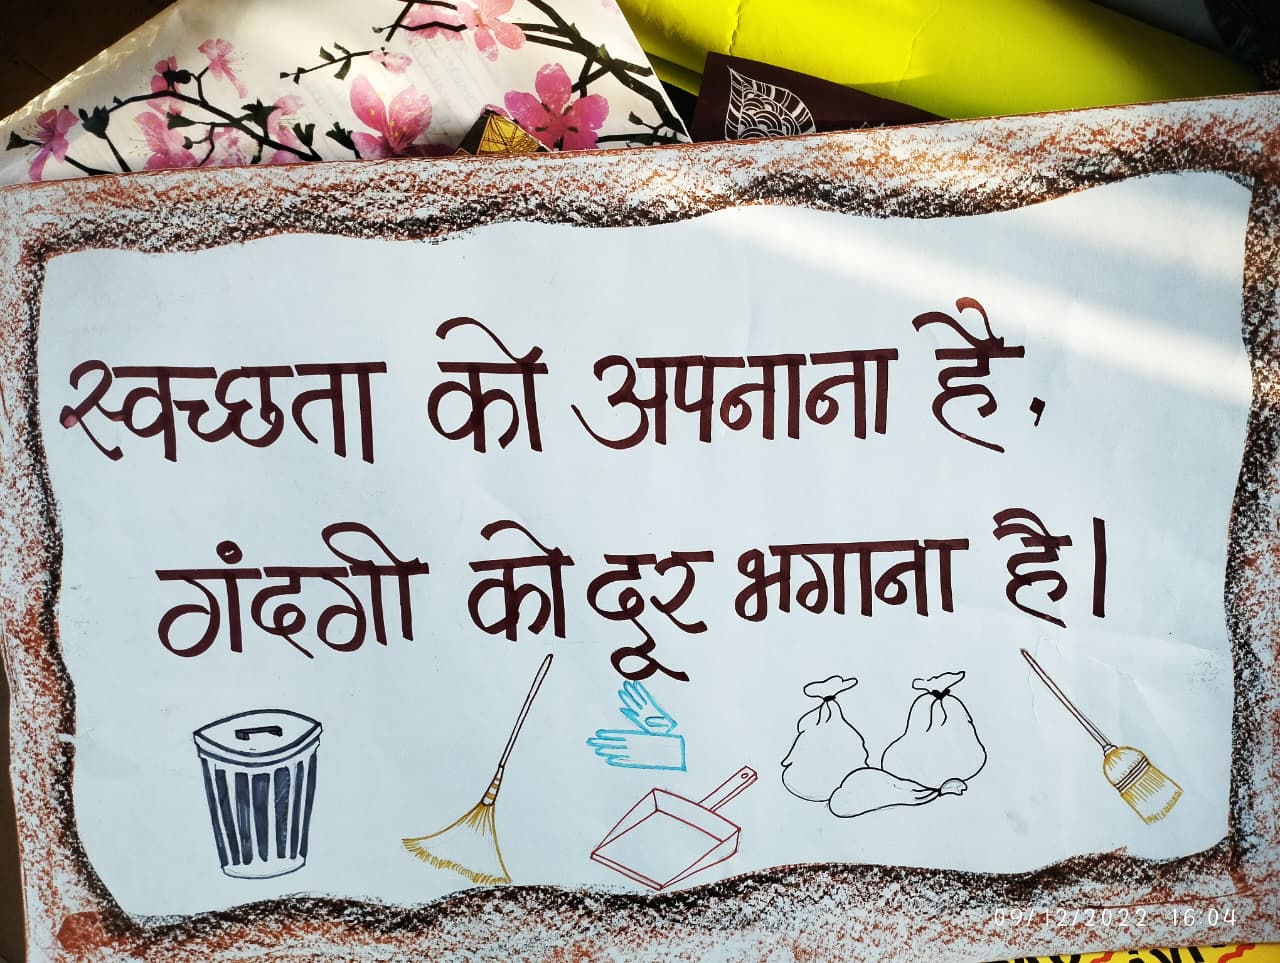 स्वच्छता को अपनाना है,
गंदगी को दूर भगाना है।
09/12/2022 16:04